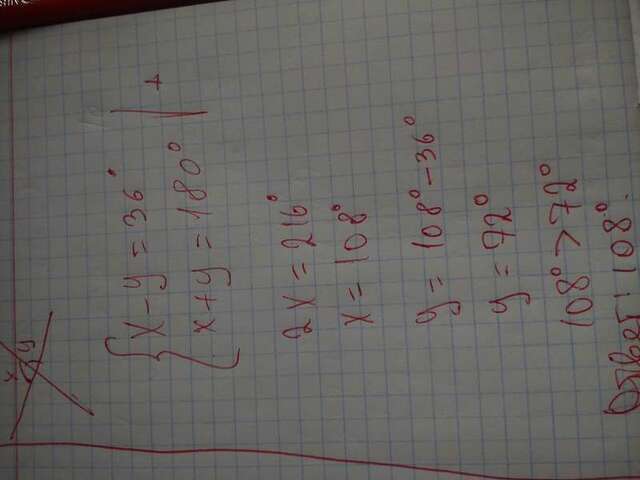 x y
x - y = 36° | +
x + y = 180°
2x = 216°
x = 108°
y = 108° - 36°
y = 72°
108° > 72°
Ответ: 108°.